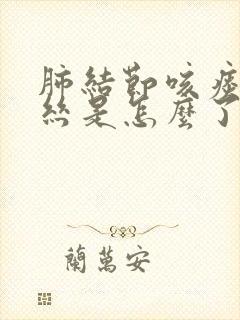 肺結節咳痰
絲是怎麼了
蘭萬安